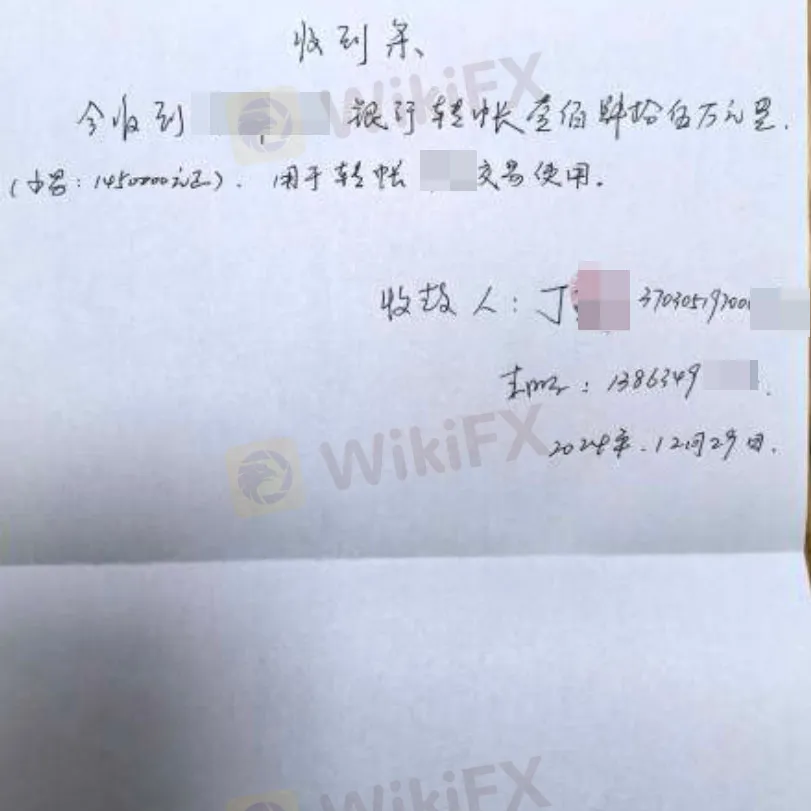 收到条
WikiFX
今收到 银行转帐壹佰肆拾伍万元整.
(小写:1450000元正). 用于转帐 交易使用.
收款人:丁 3703051970
手机:1386349
WikiFX
2024年.12月29日.
WikiFX